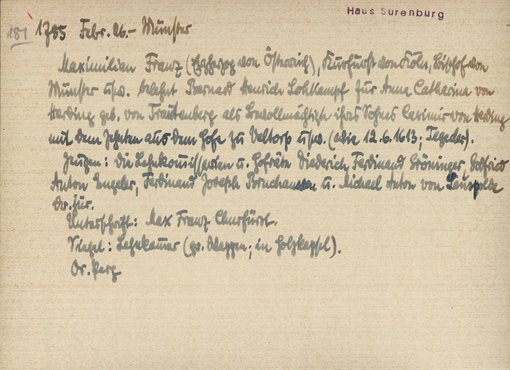 Haus Surenburg
181 1785 Febr. 26.- Münster
Maximilian Franz (Erzherzog von Österreich), Kurfürst von Köln, Bischof von
Münster usw. belehnt Bernard Henrich Lohkampf für Anna Catharina von
Harding geb. von Frautenberg als Bevollmächtigte ihres Sohns Casimir von Harding
mit dem Zehnten aus dem Hofe zu Veltorp usw. (wie 12.6.1613; Tegeder).
Zeugen: die Lehnkommissarien u. Hofräte Diederich Ferdinand Gröninger, Gottfried
Anton Engelen, Ferdinand Joseph Bruchausen u. Michael Anton von
Dr. jur.
Unterschrift: Max Franz Churfürst.
Siegel: Lehnkammer (gr. Wappen; in Holzkapsel).
Or. Perg